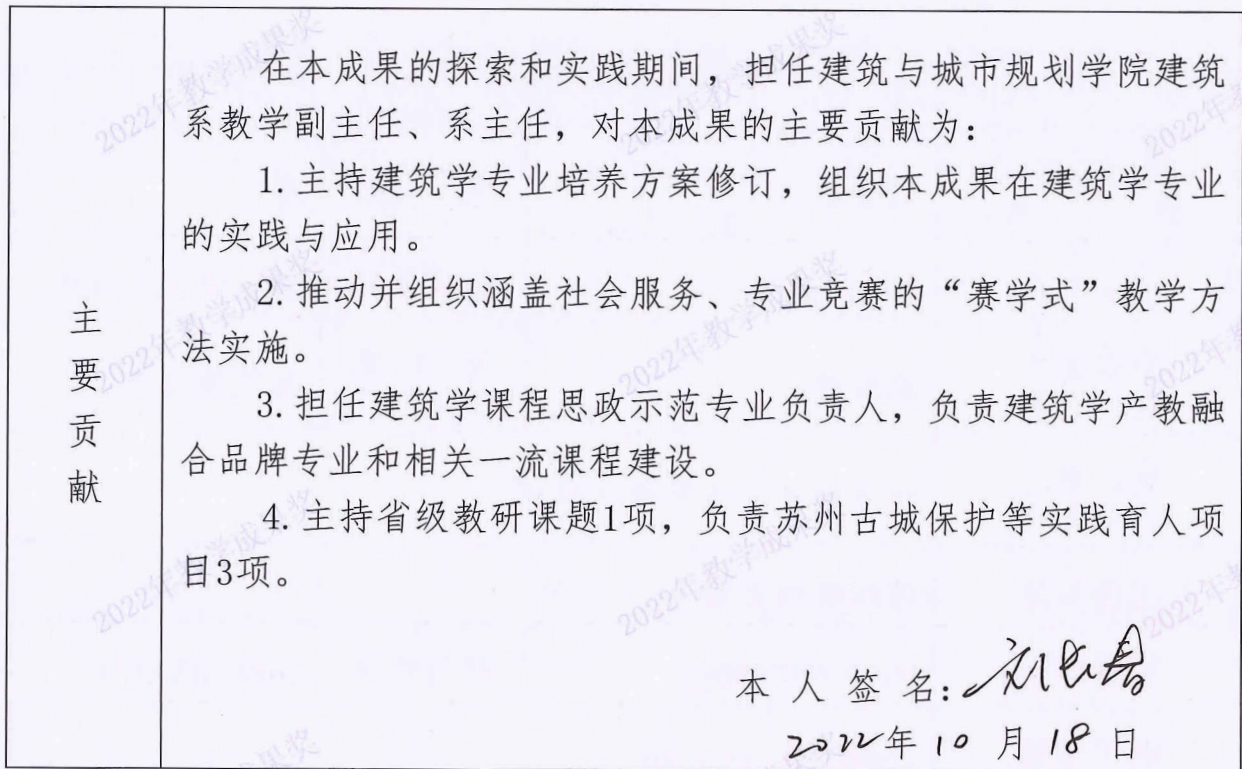 主要贡献
在本成果的探索和实践期间，担任建筑与城市规划学院建筑
系教学副主任、系主任，对本成果的主要贡献为：
1.主持建筑学专业培养方案修订，组织本成果在建筑学专业
的实践与应用。
2.推动并组织涵盖社会服务、专业竞赛的“赛学式”教学方
法实施。
3.担任建筑学课程思政示范专业负责人，负责建筑学产教融
合品牌专业和相关一流课程建设。
4.主持省级教研课题1项，负责苏州古城保护等实践育人项
目3项。
本人签名：刘长春
2022年10月18日
2022年教学成果奖